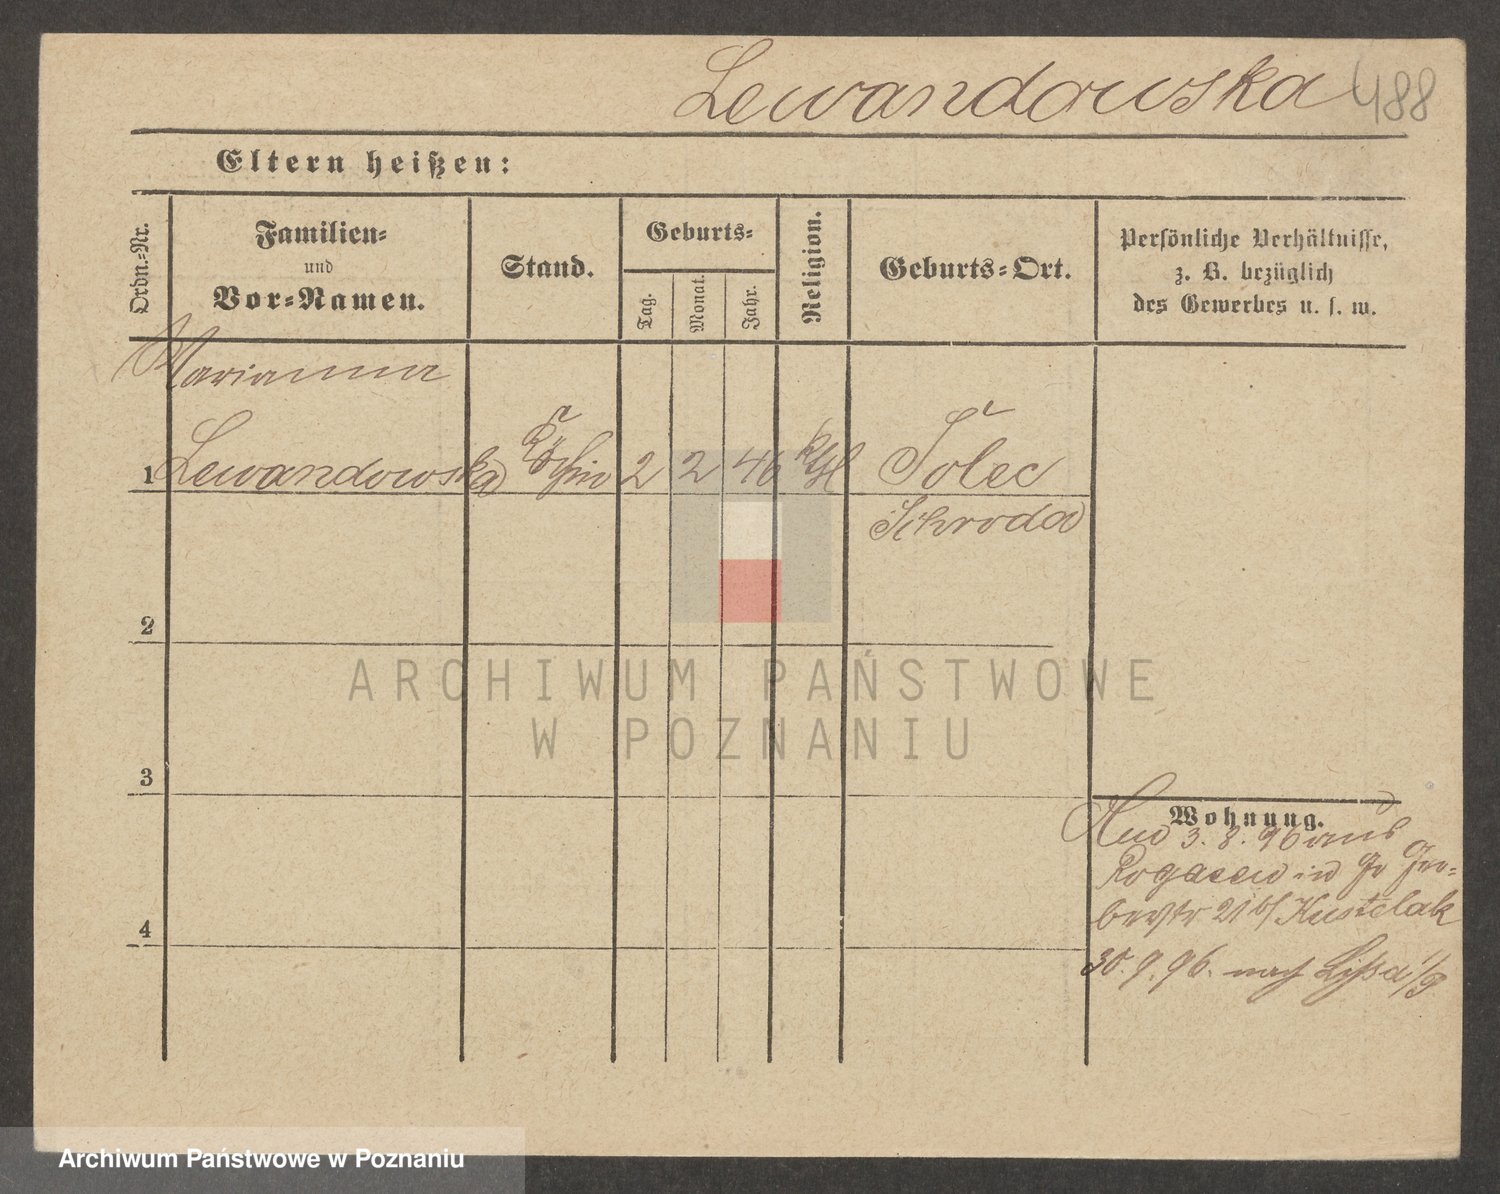 Lewandowska 488
Eltern heißen:
Ordn.-Nr.
Familien-
und
Vor-Namen.
Stand.
Geburts-
Tag.
Monat.
Jahr.
Religion.
Geburts-Ort.
Persönliche Verhältnisse,
z. B. bezüglich
des Gewerbes u. s. w.
Marianna
1 Lewandowska Köchin 2 2 46 kthl Tolec
Schroda
2
3
4
Wohnung.
3. 8. 96 aus
Rogasen in Gr Ger-
berstr 21 b/ Kustelak
30. 9. 96. nach Lissa i/P
ARCHIWUM PAŃSTWOWE
W POZNANIU
Archiwum Państwowe w Poznaniu